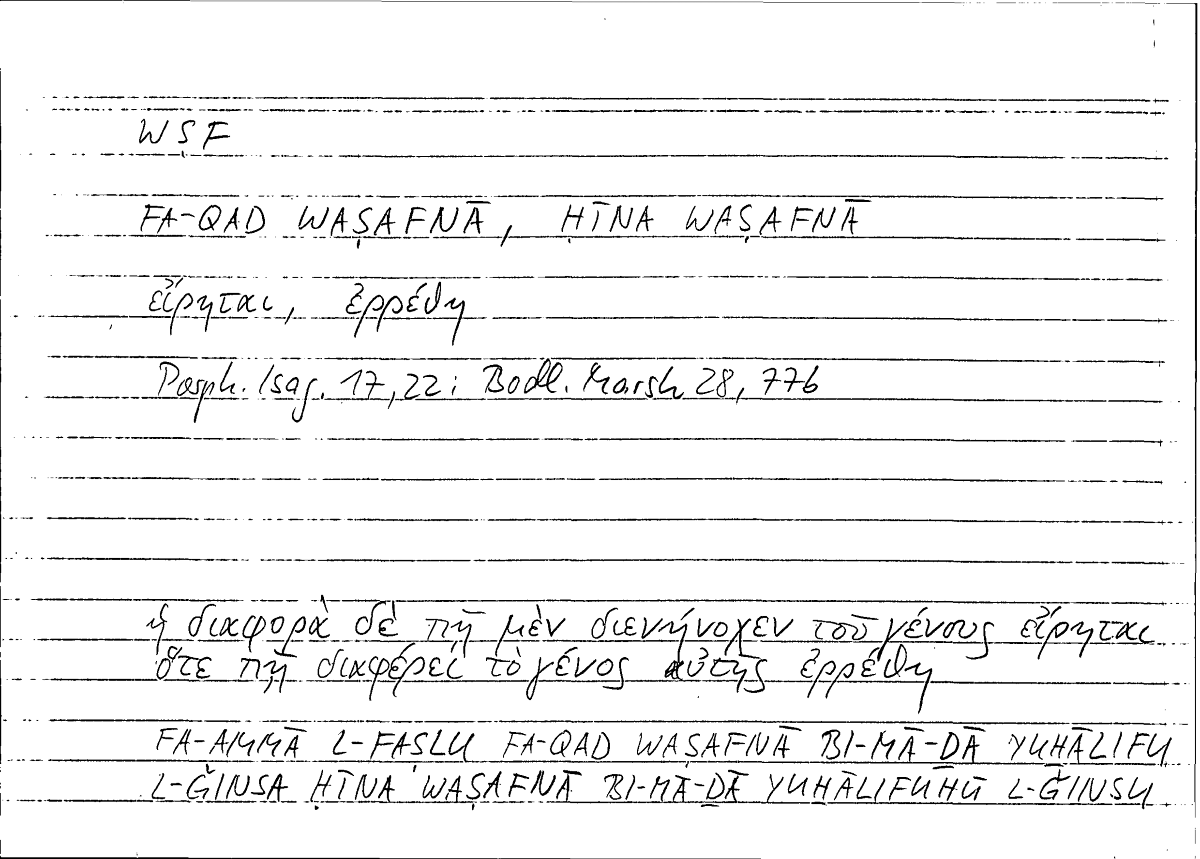 WṢF
FA-QAD WAṢAFNĀ, ḤĪNA WAṢAFNĀ
εἴρηται, ἐρρέθη
Porph. Isag. 17,22; Bodl. Marsh 28, 77b
ἡ διαφορὰ δὲ πῇ μὲν διενήνοχεν τοῦ γένους εἴρηται
ὅτε πῇ διαφέρει τὸ γένος αὐτῆς ἐρρέθη
FA-AMMĀ L-FAṢLU FA-QAD WAṢAFNĀ BI-MĀ-ḎĀ YUḪĀLIFU
L-ǦINSA ḤĪNA WAṢAFNĀ BI-MĀ-ḎĀ YUḪĀLIFUHŪ L-ǦINSU